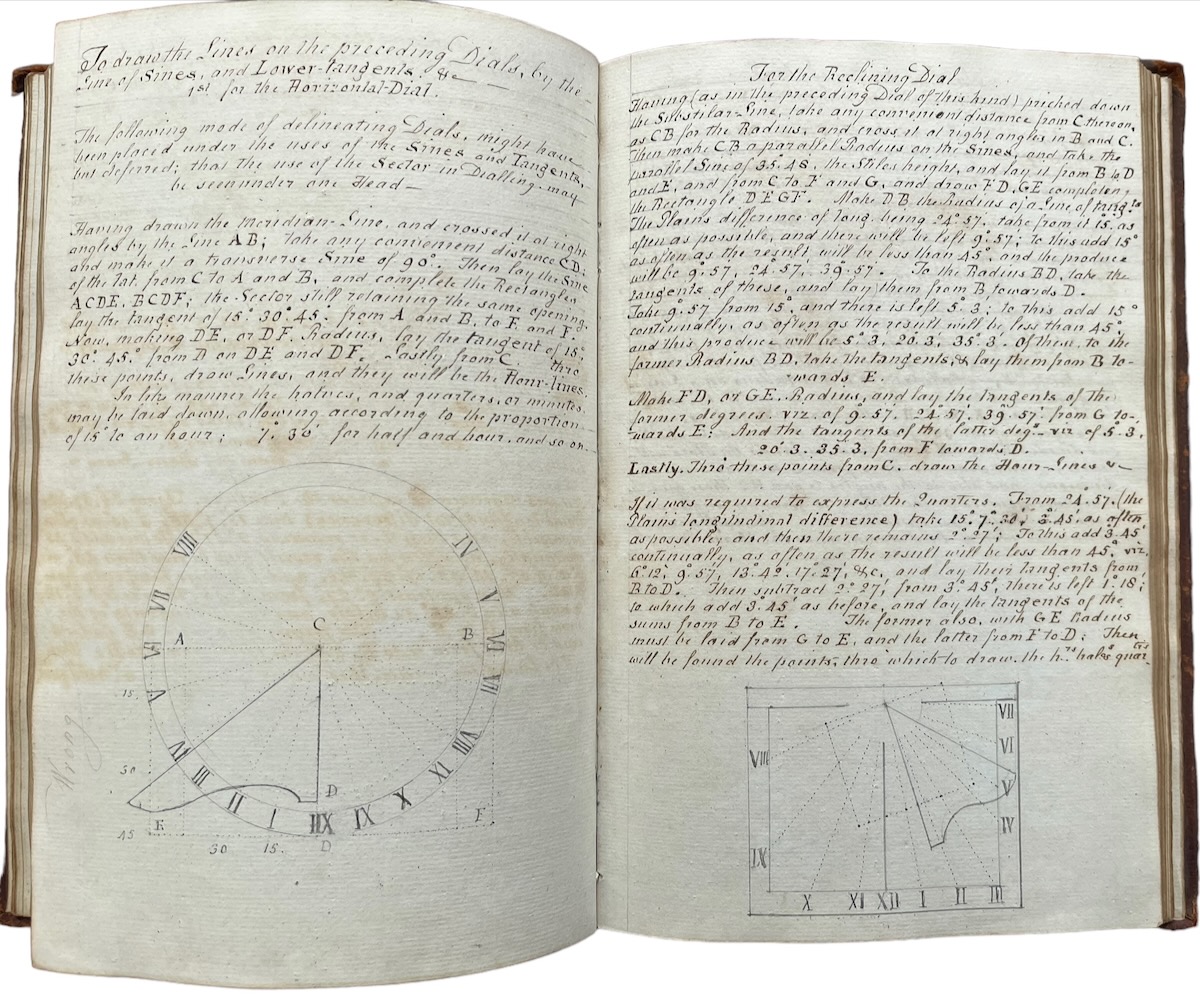 To draw the Lines on the preceding Dials, by the
Line of Sines, and Lower-tangents, &c
1st for the Horizontal-Dial.
The following mode of delineating Dials, might have
been placed under the uses of the Sines and Tangents,
but deferred; that the use of the Sector in Dialling may
be seen under one Head —
Having drawn the Meridian-Line, and crossed it at right
angles by the Line AB; take any convenient distance CD;
and make it a transverse Sine of 90°. Then lay the Sine
of the lat. from C to A and B, and complete the Rectangles
ACDE, BCDF; the Sector still retaining the same opening,
lay the tangent of 15° 30° 45° from A and B, to E, and F.
Now, making DE, or DF, Radius, lay the tangent of 15°,
30°. 45° from D on DE and DF. Lastly from C, thro
these points, draw Lines, and they will be the Hour-lines.
In like manner the halves, and quarters, or minutes
may be laid down, allowing according to the proportion
of 15° to an hour; 7°. 30' for half and hour, and so on.
VIII
IV
VII
V
C
A
B
VI
VI
15
V
VII
IV
VIII
30
III
IX
II
X
D
I
XI
E
F
IIX
45
30
15
D
Wrong
For the Reclining Dial
Having (as in the preceding Dial of this kind) pricked down
the Substilar-Line, take any convenient distance from C thereon,
as CB for the Radius, and cross it at right angles in B and C.
Then make CB a parallel Radius on the Sines, and take the
parallel Sine of 35°.48, the Stiles height, and lay it from B to D
and E, and from C to F and G, and draw FD, GE completeing
the Rectangle DEGF. Make DB, the Radius of a Line of tangts
The Plains difference of long. being 24°.57; take from it 15, as
often as possible, and there will be left 9°.57; to this add 15°
as often as the result, will be less than 45°, and the produce
will be 9°.57, 24.57, 39.57. To the Radius BD, take the
tangents of these, and lay them from B towards D.
Take 9°.57 from 15°, and there is left 5°.3; to this add 15°
continually, as often as the result will be less than 45°,
and this produce will be 5°.3, 20.3, 35°.3. Of these, to the
former Radius BD, take the tangents, & lay them from B to-
wards E.
Make FD, or GE, Radius, and lay the tangents of the
former degrees. viz. of 9°.57. 24.57. 39.57. from G to-
wards E; And the tangents of the latter degs viz of 5°.3,
20.3. 35.3, from F towards D.
Lastly. Thro these points from C. draw the Hour-Lines
If it was required to express the Quarters. From 24°.57, (the
Plains longitudinal difference) take 15°. 7°.30', 3°.45', as often
as possible; and then there remains 2°.27'; To this add 3°.45'
continually, as often as the result will be less than 45°, viz,
6°.12, 9°.57, 13°.42, 17°.27, &c, and lay their tangents from
B to D. Then subtract 2°.27, from 3°.45, there is left 1°.18;
to which add 3°.45 as before, and lay the tangents of the
sums from B to E. The former also, with GE Radius
must be laid from G to E, and the latter from F to D; Then
will be found the points, thro which to draw the hrs halfs quartrs
VII
VIII
VI
V
IV
IX
X
XI
XII
I
II
III